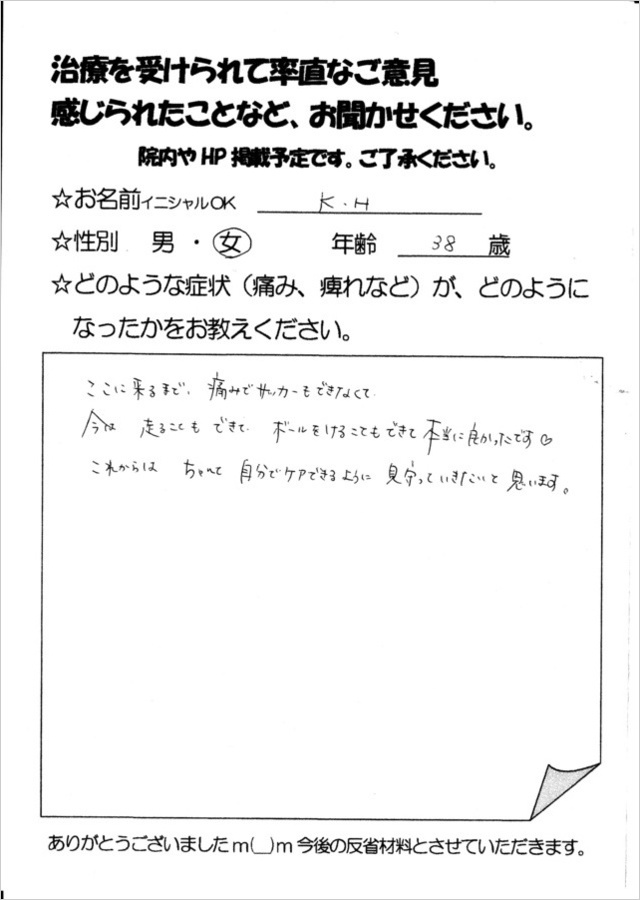 治療を受けられて率直なご意見
感じられたことなど、お聞かせください。
院内やHP掲載予定です。ご了承ください。
☆お名前イニシャルOK K.H
☆性別 男・女 年齢 38 歳
☆どのような症状（痛み、痺れなど）が、どのように
なったかをお教えください。
ここに来るまで、痛みでサッカーもできなくて
今は 走ることも できて ボールをけることもできて 本当に良かったです♡
これからは ちゃんと 自分でケアできるように 見守っていきたいと 思います。
ありがとうございましたm(__)m今後の反省材料とさせていただきます。